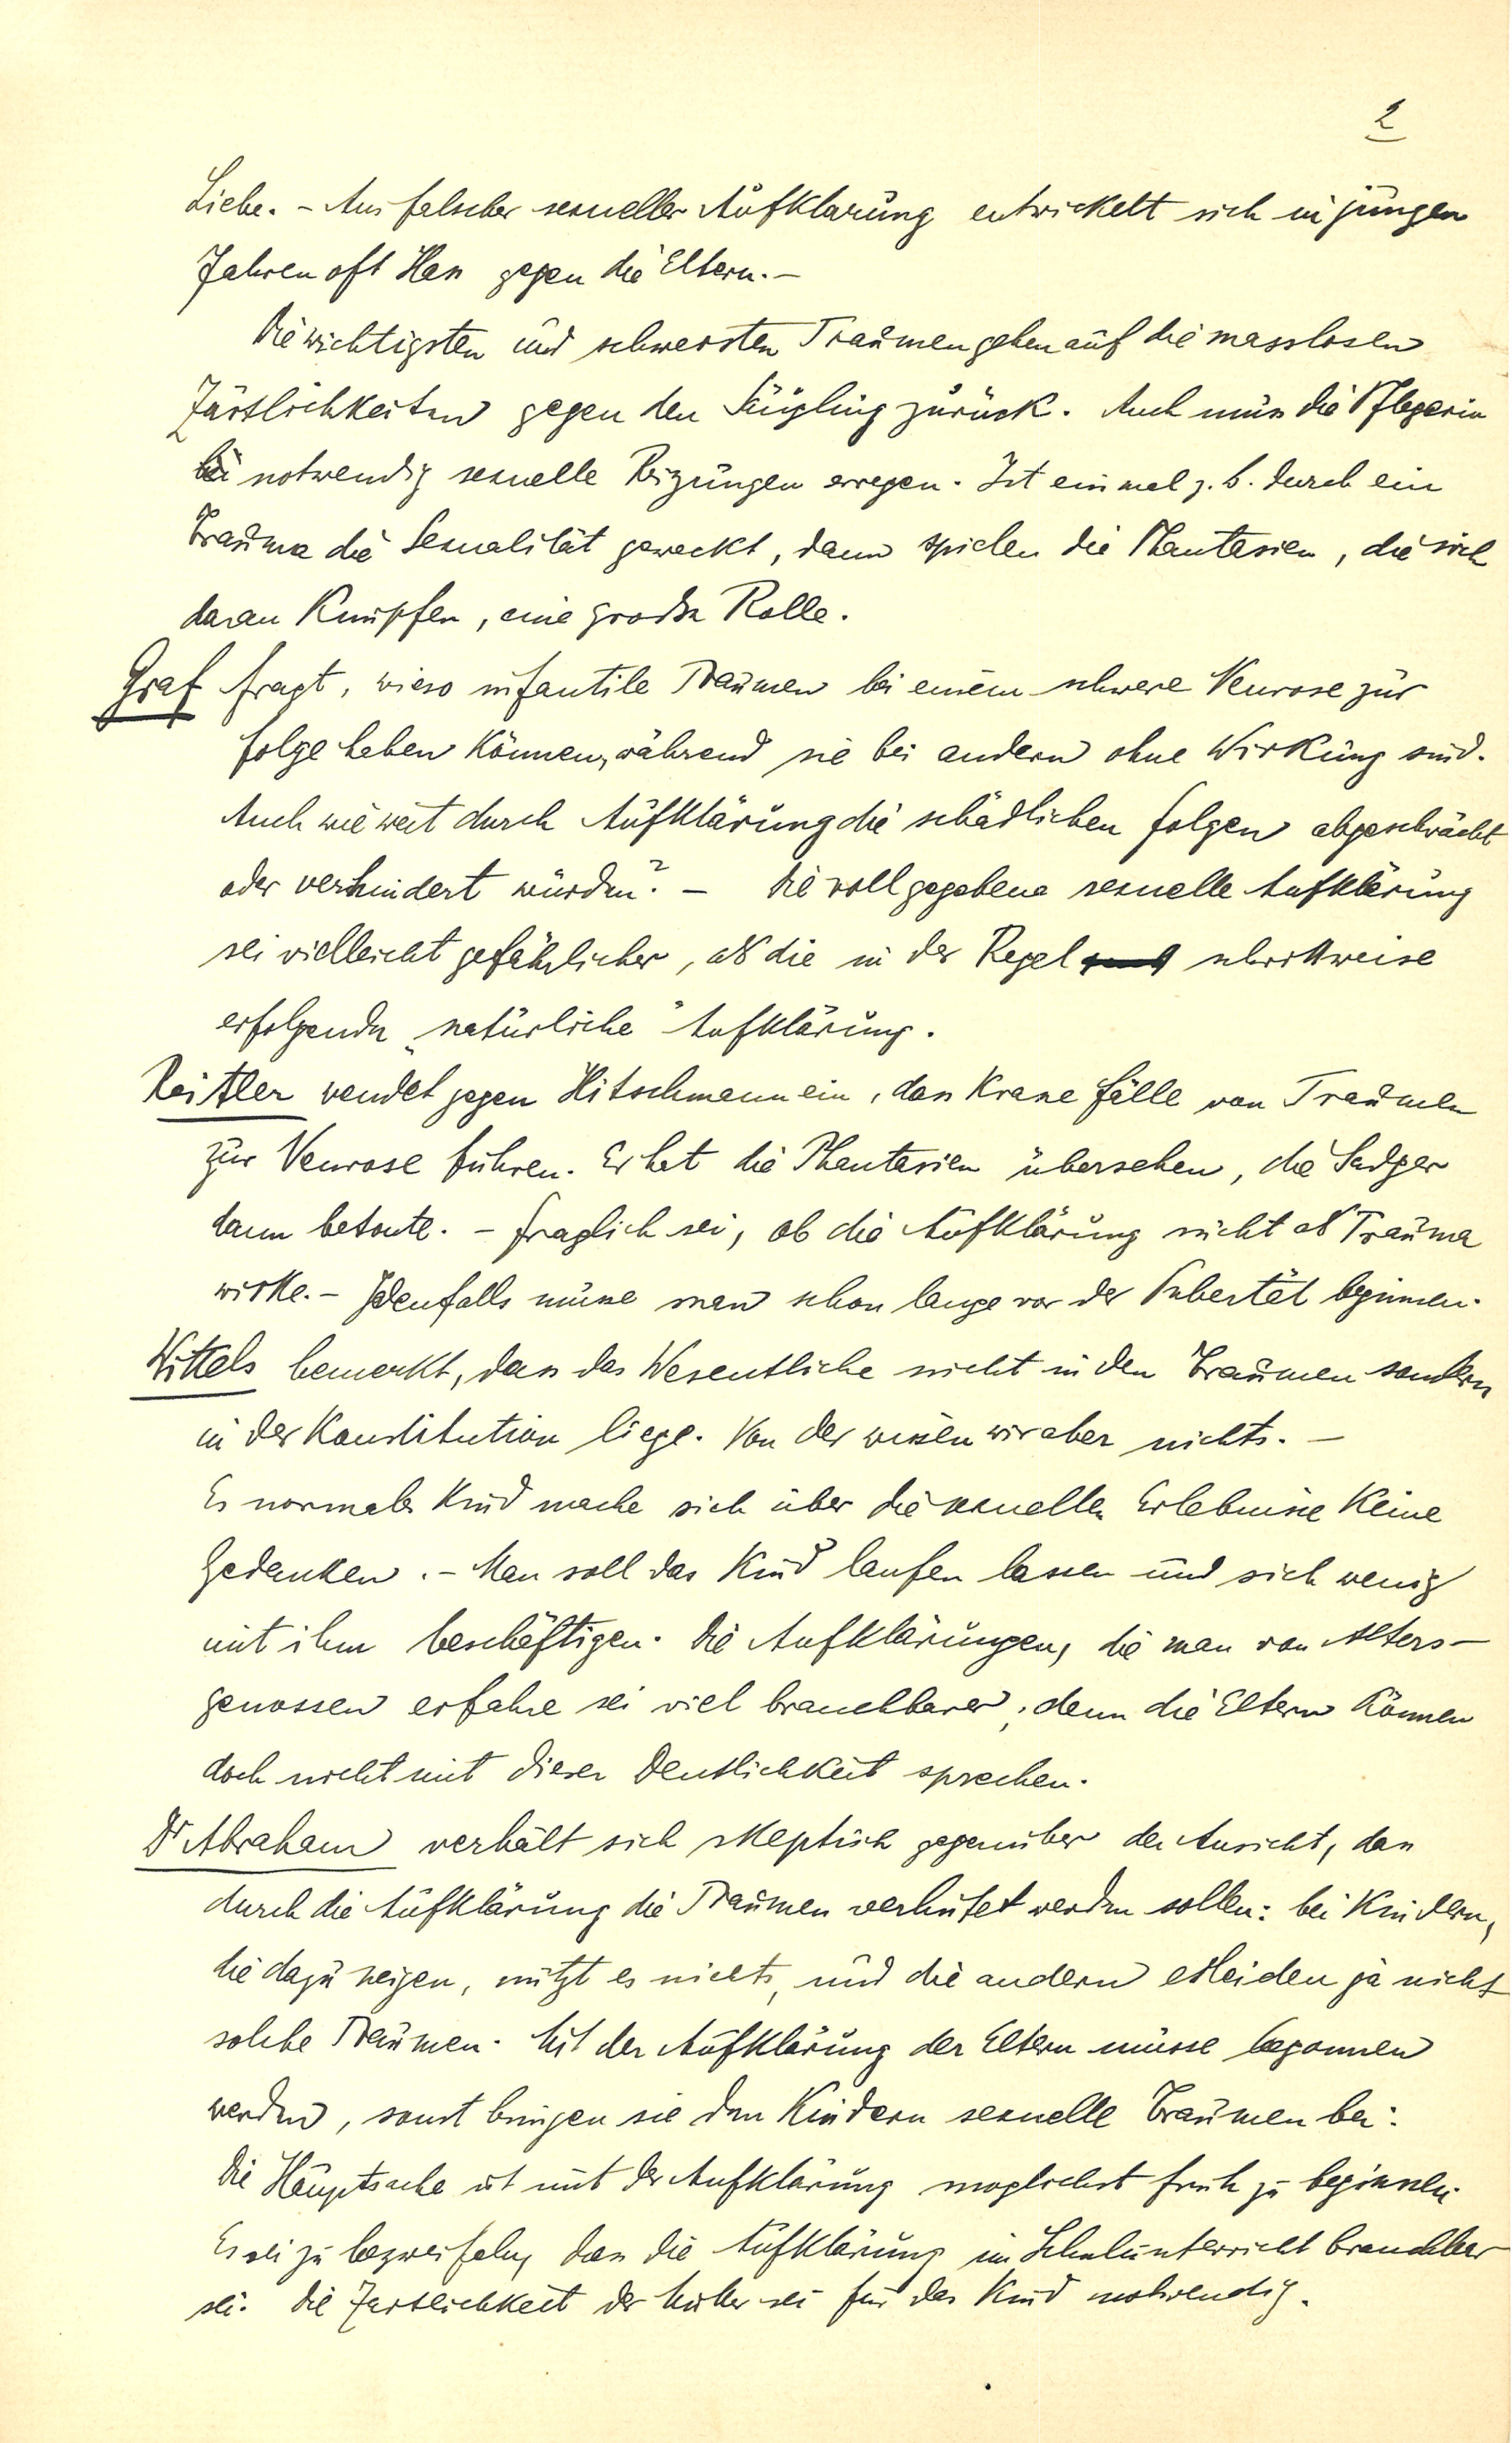 2
Liebe. – Aus falscher sexueller Aufklärung entwickelt sich in jungen
Jahren oft Hass gegen die Eltern. –
Die wichtigsten und schwersten Traumen gehen auf die masslosen
Zärtlichkeiten gegen den Säugling zurück. Auch muss die Pflegerin
notwendig sexuelle Reizungen erregen. Ist einmal z. b. durch ein
Trauma die Sexualität geweckt, dann spielen die Phantasien, die sich
daran Knüpfen, eine grosse Rolle.
Graf fragt, wieso infantile Traumen bei einem schwere Neurose zur
folge haben Können, während sie bei andern ohne Wirkung sind.
Auch wie weit durch Aufklärung die schädlichen folgen abgeschwächt
oder verhindert würden? – Die voll gegebene sexuelle Aufklärung
sei vielleicht gefährlicher, als die in der Regel schrittweise
erfolgende „natürliche" Aufklärung.
Reitler wendet gegen Hitschmann ein, dass Krasse fälle von Traumen
zur Neurose führen. Er hat die Phantasien übersehen, die Sadger
dann betonte. – fraglich sei, ob die Aufklärung nicht als Trauma
wirke. – Jedenfalls müsse man schon lange vor der Pubertät beginnen.
Wittels bemerkt, dass das Wesentliche nicht in den Traumen sondern
in der Konstitution liege. Von der wissen wir aber nichts. –
Es normales Kind mache sich über die sexuellen Erlebnisse Keine
Gedanken. – Man soll das Kind laufen lassen und sich wenig
mit ihm beschäftigen. Die Aufklärungen, die man von Alters–
genossen erfahre sei viel brauchbarer; denn die Eltern Können
doch nicht mit dieser Deutlichkeit sprechen.
Dr Abraham verhält sich skeptisch gegenüber der Ansicht, dass
durch die Aufklärung die Traumen verhütet werden sollen: bei Kindern,
die dazu neigen, nützt es nichts, und die andern erleiden ja nicht
solche Traumen. Mit der Aufklärung der Eltern müsse begonnen
werden, sonst bringen sie den Kindern sexuelle Traumen bei.
Die Hauptsache ist mit der Aufklärung möglichst früh zu beginnen.
Es sei zu bezweifeln, dass die Aufklärung im Schulunterricht brauchbar
sei. Die Zärtlichkeit der Mutter sei für das Kind notwendig.